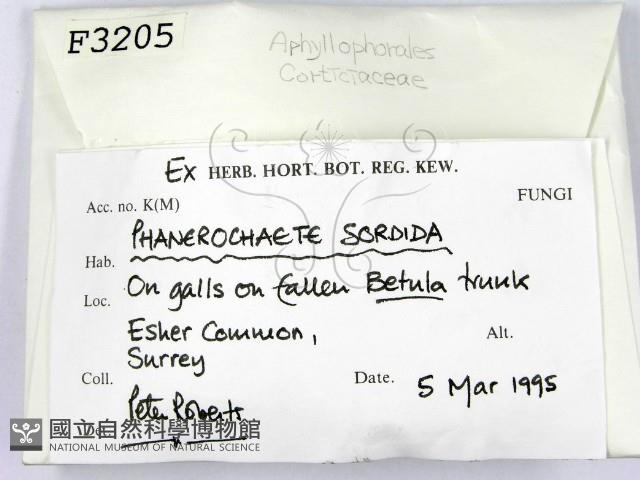 F3205
Aphyllophorales
Corticiaceae
Ex HERB. HORT. BOT. REG. KEW.
Acc. no. K(M)
FUNGI
PHANEROCHAETE SORDIDA
Hab.
On galls on fallen Betula trunk
Loc.
Esher Common,
Alt.
Surrey
Coll.
Date.
5 Mar 1995
Peter Roberts
國立自然科學博物館
NATIONAL MUSEUM OF NATURAL SCIENCE